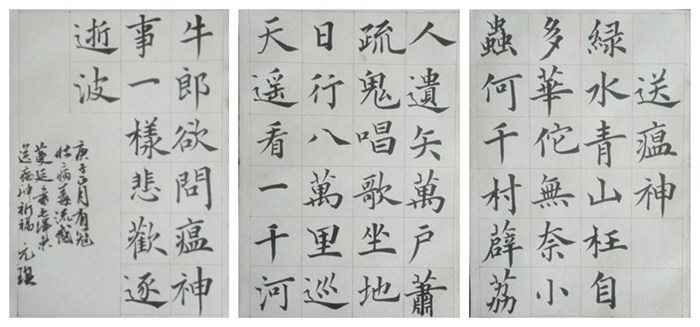 送瘟神
緑水青山枉自
多華佗無奈小
蟲何千村薜荔
人遺矢萬戶蕭
疏鬼唱歌坐地
日行八萬里巡
天遥看一千河
牛郎欲問瘟神
事一樣悲歡逐
逝波
庚子正月有冠
状病毒流感
蔓延書毛澤東
送瘟神祈福 元